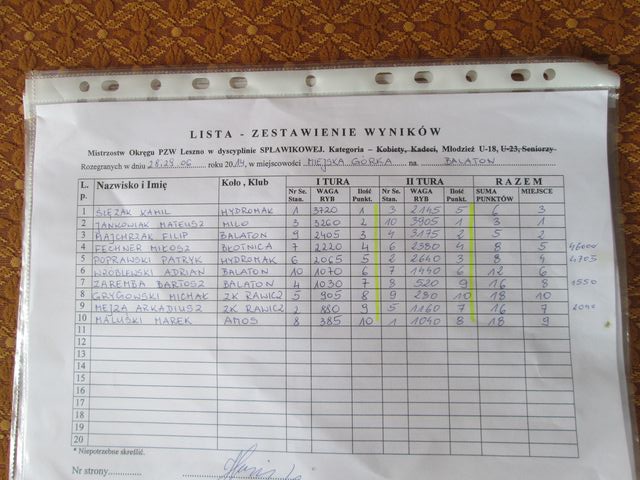 LISTA - ZESTAWIENIE WYNIKÓW
Mistrzostw Okręgu PZW Leszno w dyscyplinie SPŁAWIKOWEJ. Kategoria – Kobiety, Kadeci, Młodzież U-18, U-23, Seniorzy
Rozegranych w dniu 28,29.06 roku 2014, w miejscowości MIEJSKA GÓRKA na BALATON
L. p. Nazwisko i Imię Koło, Klub I TURA II TURA RAZEM
Nr Se. Stan. WAGA RYB Ilość Punkt. Nr Se. Stan. WAGA RYB Ilość Punkt. SUMA PUNKTÓW MIEJSCE
1 ŚLĘZAK KAMIL HYDROMAK 1 3720 1 3 2145 5 6 3
2 JANKOWIAK MATEUSZ MILO 3 3260 2 10 3905 1 3 1
3 MAJCHRZAK FILIP BALATON 9 2405 3 4 3175 2 5 2
4 FECHNER MIŁOSZ BŁOTNICA 7 2220 4 6 2380 4 8 5
5 POPRAWSKI PATRYK HYDROMAK 6 2065 5 2 2640 3 8 4 4705
6 WRÓBLEWSKI ADRIAN BALATON 10 1070 6 7 1440 6 12 6
7 ZAREMBA BARTOSZ BALATON 4 1030 7 8 520 9 16 8 1550
8 GRYGOWSKI MICHAŁ ZK RAWICZ 5 905 8 9 280 10 18 10
9 MEJZA ARKADIUSZ ZK RAWICZ 2 880 9 5 1160 7 16 7 2040
10 MALUŚKI MAREK AMOS 8 385 10 1 1040 8 18 9
11
12
13
14
15
16
17
18
19
20
* Niepotrzebne skreślić.
Nr strony